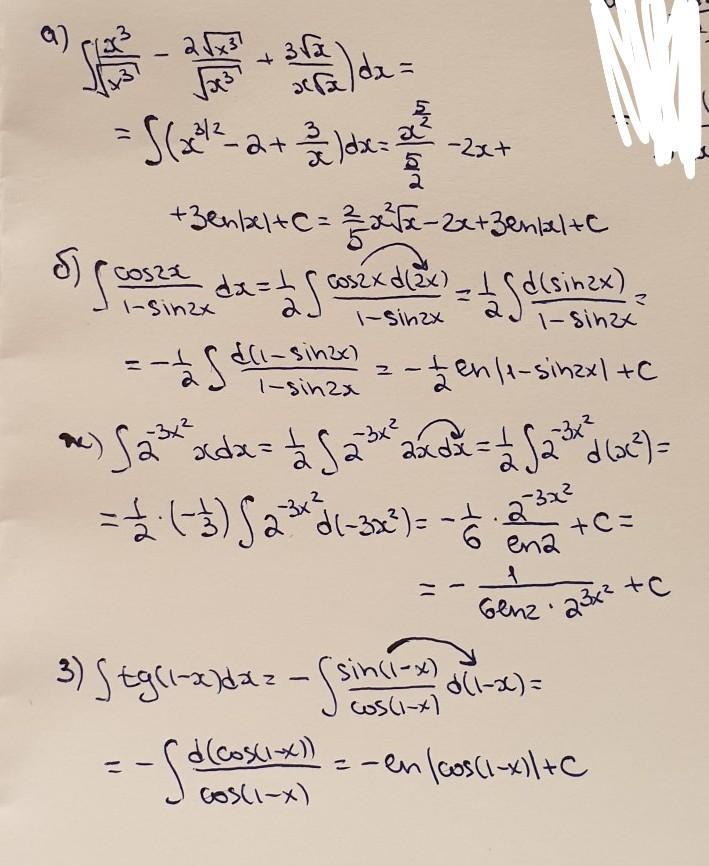 а) ∫(x³/√x³ − 2√x³/√x³ + 3√x/x√x)dx =
= ∫(x^{3/2} − 2 + 3/x)dx = x^{5/2}/(5/2) − 2x +
+ 3ln|x| + C = 2/5 x²√x − 2x + 3ln|x| + C
б) ∫ cos2x/(1−sin2x) dx = 1/2 ∫ cos2x d(2x)/(1−sin2x) = 1/2 ∫ d(sin2x)/(1−sin2x) =
= −1/2 ∫ d(1−sin2x)/(1−sin2x) = −1/2 ln|1−sin2x| + C
ж) ∫2^{−3x²} xdx = 1/2 ∫2^{−3x²} 2xdx = 1/2 ∫2^{−3x²} d(x²) =
= 1/2 · (−1/3) ∫2^{−3x²} d(−3x²) = −1/6 · 2^{−3x²}/ln2 + C =
= − 1/(6ln2 · 2^{3x²}) + C
з) ∫tg(1−x)dx = −∫ sin(1−x)/cos(1−x) d(1−x) =
= −∫ d(cos(1−x))/cos(1−x) = −ln|cos(1−x)| + C